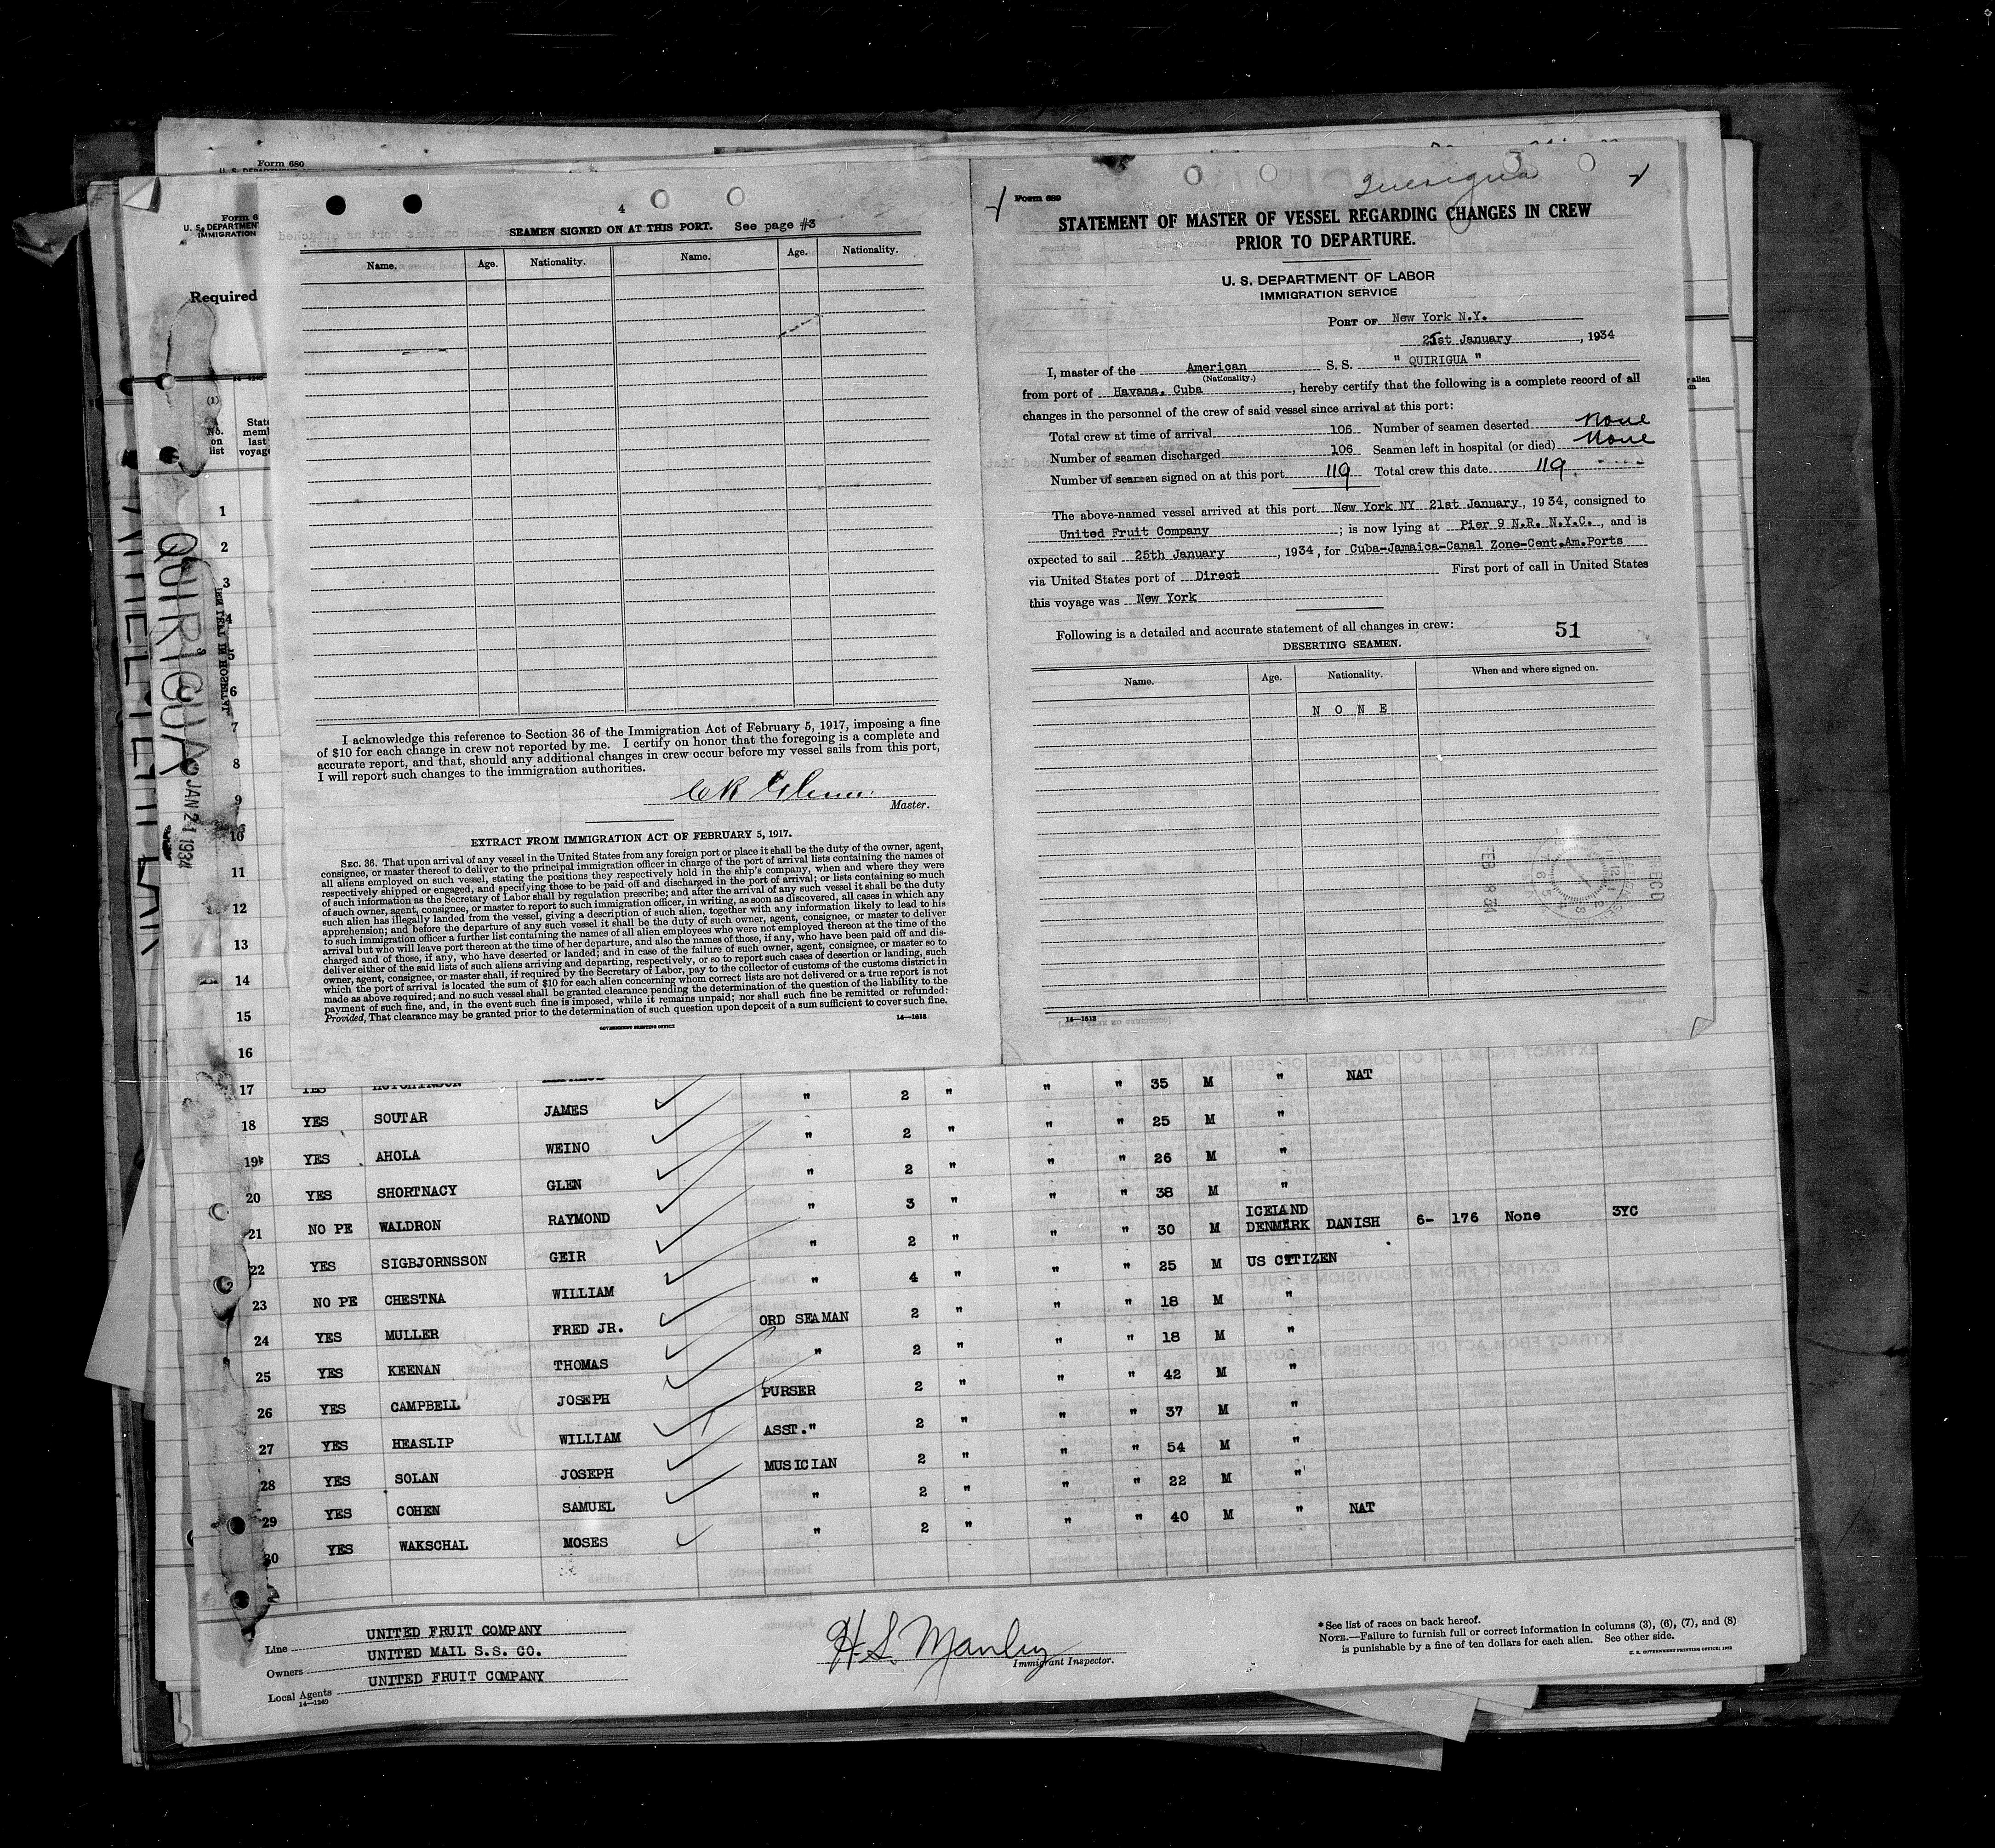 Form 680
4
SEAMEN SIGNED ON AT THIS PORT. See page #3
Name. Age. Nationality. Name. Age. Nationality.
I acknowledge this reference to Section 36 of the Immigration Act of February 5, 1917, imposing a fine
of $10 for each change in crew not reported by me. I certify on honor that the foregoing is a complete and
accurate report, and that, should any additional changes in crew occur before my vessel sails from this port,
I will report such changes to the immigration authorities.
Master.
EXTRACT FROM IMMIGRATION ACT OF FEBRUARY 5, 1917.
SEC. 36. That upon arrival of any vessel in the United States from any foreign port or place it shall be the duty of the owner, agent,
consignee, or master thereof to deliver to the principal immigration officer in charge of the port of arrival lists containing the names of
all aliens employed on such vessel, stating the positions they respectively hold in the ship's company, when and where they were
respectively shipped or engaged, and specifying those to be paid off and discharged in the port of arrival; or lists containing so much
of such information as the Secretary of Labor shall by regulation prescribe; and after the arrival of any such vessel it shall be the duty
of such owner, agent, consignee, or master to report to such immigration officer, in writing, as soon as discovered, all cases in which any
such alien has illegally landed from the vessel, giving a description of such alien, together with any information likely to lead to his
apprehension; and before the departure of any such vessel it shall be the duty of such owner, agent, consignee, or master to deliver
to such immigration officer a further list containing the names of all alien employees who were not employed thereon at the time of the
arrival but who will leave port thereon at the time of her departure, and also the names of those, if any, who have been paid off and dis-
charged and of those, if any, who have deserted or landed; and in case of the failure of such owner, agent, consignee, or master so to
deliver either of the said lists of such aliens arriving and departing, respectively, or so to report such cases of desertion or landing, such
owner, agent, consignee, or master shall, if required by the Secretary of Labor, pay to the collector of customs of the customs district in
which the port of arrival is located the sum of $10 for each alien concerning whom correct lists are not delivered or a true report is not
made as above required; and no such vessel shall be granted clearance pending the determination of the question of the liability to the
payment of such fine, and, in the event such fine is imposed, while it remains unpaid; nor shall such fine be remitted or refunded:
Provided, That clearance may be granted prior to the determination of such question upon deposit of a sum sufficient to cover such fine.
GOVERNMENT PRINTING OFFICE 14—1613
Quirigua
Form 689
STATEMENT OF MASTER OF VESSEL REGARDING CHANGES IN CREW
PRIOR TO DEPARTURE.
U. S. DEPARTMENT OF LABOR
IMMIGRATION SERVICE
PORT OF New York N.Y.
21st January, 1934
I, master of the American S. S. " QUIRIGUA "
(Nationality.)
from port of Havana, Cuba, hereby certify that the following is a complete record of all
changes in the personnel of the crew of said vessel since arrival at this port:
Total crew at time of arrival 106 Number of seamen deserted None
Number of seamen discharged 106 Seamen left in hospital (or died) None
Number of seamen signed on at this port 119 Total crew this date 119
The above-named vessel arrived at this port New York NY 21st January, 1934, consigned to
United Fruit Company; is now lying at Pier 9 N.R. N.Y.C., and is
expected to sail 25th January, 1934, for Cuba-Jamaica-Canal Zone-Cent.Am.Ports
via United States port of Direct First port of call in United States
this voyage was New York
Following is a detailed and accurate statement of all changes in crew: 51
DESERTING SEAMEN.
Name. Age. Nationality. When and where signed on.
N O N E
FEB 8 34
RECD
14—1613
Form 6
U. S. DEPARTMENT
IMMIGRATION
Required
(1)
No.
on
list
QUIRIGUA
JAN 21 1934
1
2
3
4
5
6
7
8
9
10
11
12
13
14
15
16
17 YES HUTCHINSON " 2 " " " 35 M " NAT
18 YES SOUTAR JAMES " 2 " " " 25 M "
19 YES AHOLA WEINO " 2 " " " 26 M "
20 YES SHORTNACY GLEN " 3 " " " 38 M "
21 NO PE WALDRON RAYMOND " 2 " " " 30 M ICELAND DENMARK DANISH 6- 176 None 3YC
22 YES SIGBJORNSSON GEIR " 4 " " " 25 M US CITIZEN
23 NO PE CHESTNA WILLIAM ORD SEAMAN 2 " " " 18 M "
24 YES MULLER FRED JR. " 2 " " " 18 M "
25 YES KEENAN THOMAS PURSER 2 " " " 42 M "
26 YES CAMPBELL JOSEPH ASST." 2 " " " 37 M "
27 YES HEASLIP WILLIAM MUSICIAN 2 " " " 54 M "
28 YES SOLAN JOSEPH " 2 " " " 22 M "
29 YES COHEN SAMUEL " 2 " " " 40 M " NAT
30 YES WAKSCHAL MOSES
Line UNITED FRUIT COMPANY
Owners UNITED MAIL S.S. CO.
Local Agents UNITED FRUIT COMPANY
14—1240
H. S. Manley
Immigrant Inspector.
*See list of races on back hereof.
NOTE.—Failure to furnish full or correct information in columns (3), (6), (7), and (8)
is punishable by a fine of ten dollars for each alien. See other side.